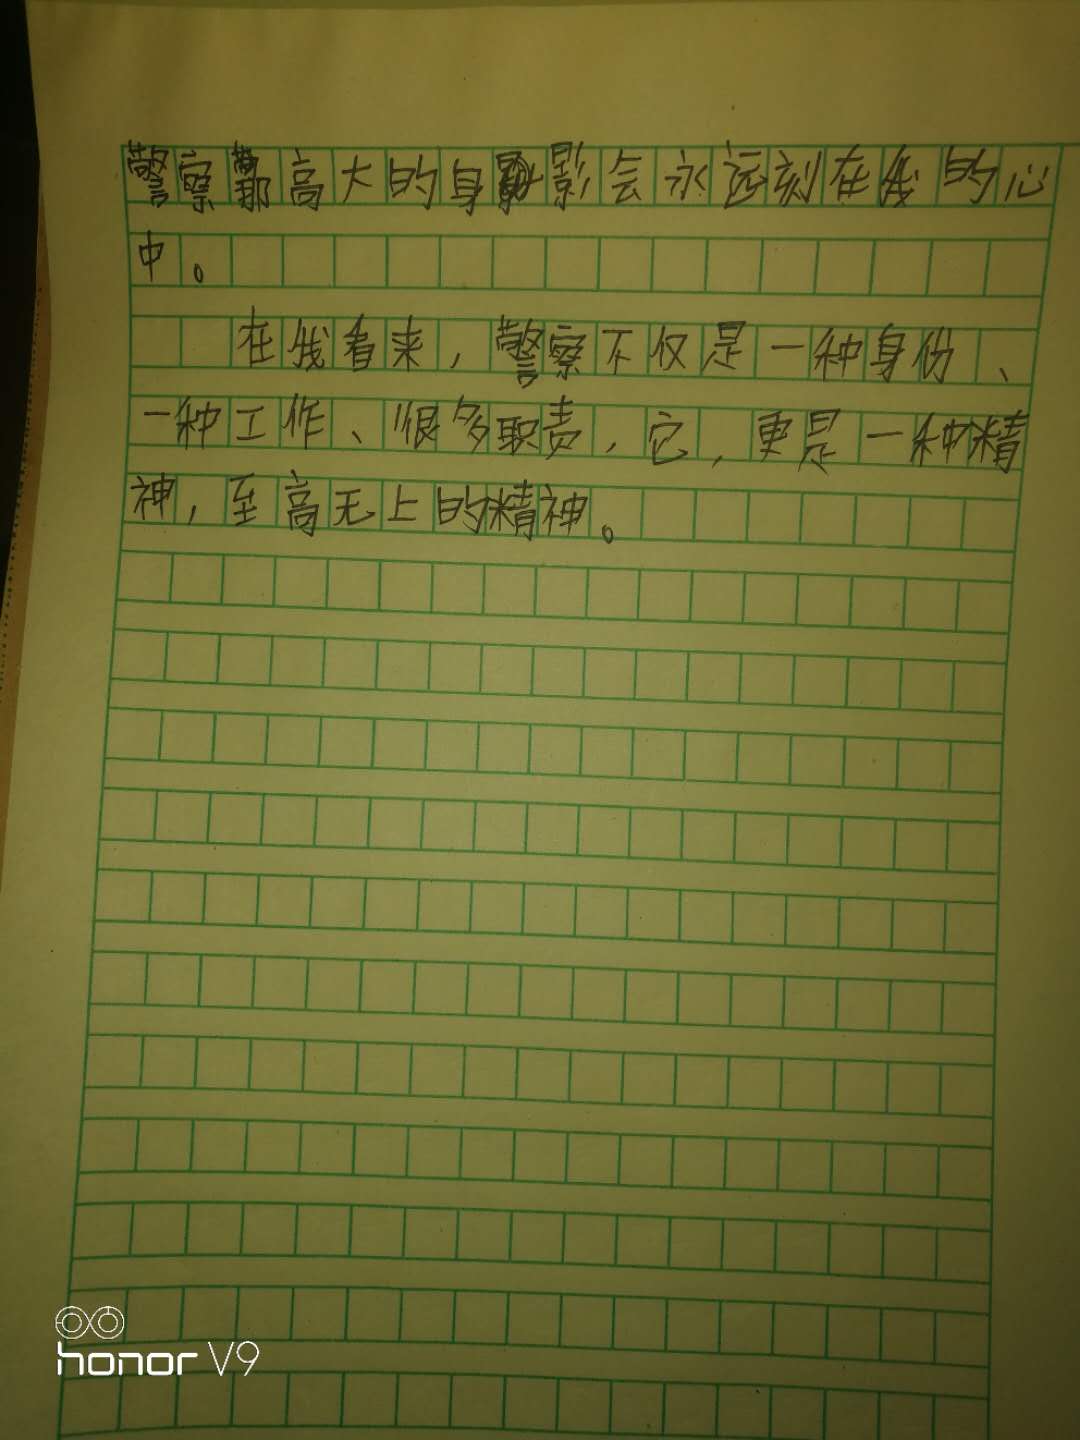 警察那高大的身影会永远刻在我的心
中。
在我看来，警察不仅是一种身份、
一种工作、很多职责，它，更是一种精
神，至高无上的精神。
honor V9